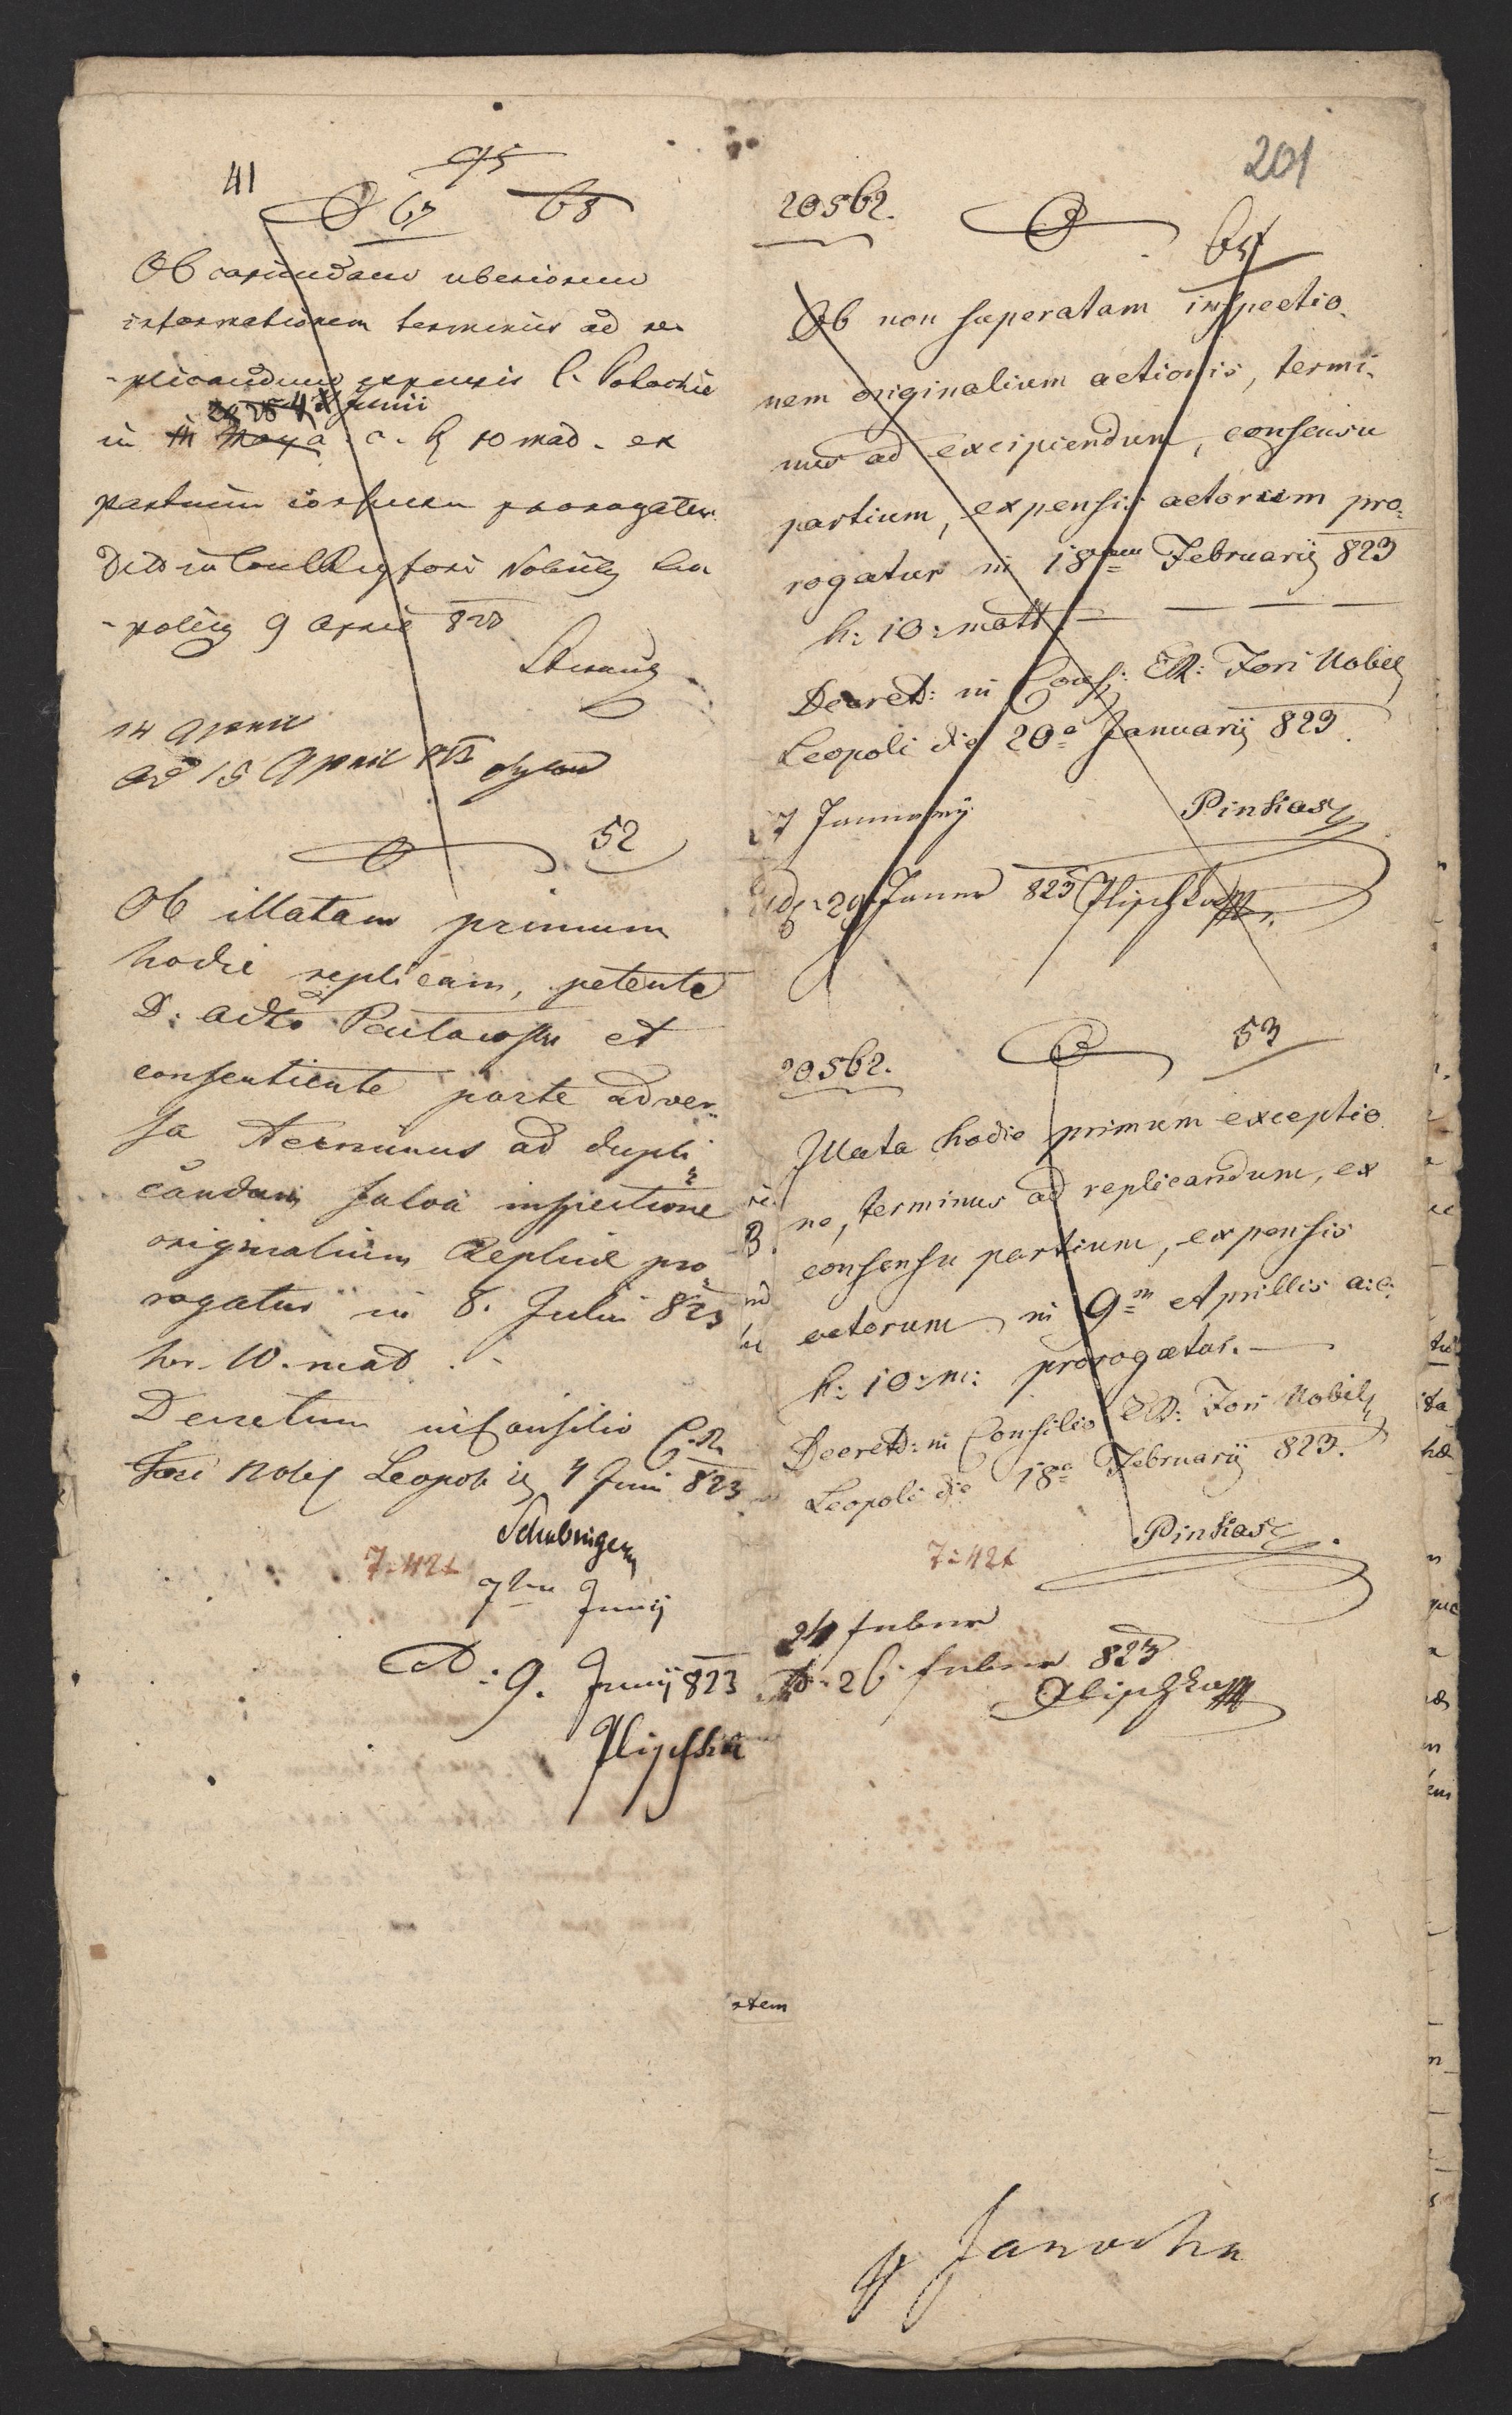 41
95
67 68
Ob capiendam uberiorem
informationem terminus ad re
-plicandum expensis
Junii
in Maya a. c. h 10 mad. ex
partium consensu prorogatur.
Fori Nobily Leo
-poliy 9 April 823
14 April
Ad 15 April
52
Ob illatam primum
hodie replicam, petente
D: Adto et
consentiente parte adver„
sa terminus ad dupli„
candum salva inspectione
originalium Replicæ pro„
rogatur in 8. Julii 823
hr. 10. mat.
Decretum in Consilio C. R.
Fori Nobil Leopol 4 Juni 823
7„42x
7 Junij
Ad: 9. Junij 823
Plischka
201
20562.
64
Ob non superatam inspectio„
nem originalium actionis, termi„
nus ad excipiendum, consensu
partium, expensis actorum pro„
rogatur in 18 Februarij 823
h: 10: matt: — — — —
Decret: in Cons: CR: Fori Nobil
Leopoli die 20a Januarij 823.
27 Januarij
Pinkas
29 Januar 823 Plischka
20562.
53
Illata hodie primum exceptio„
ne, terminus ad replicandum, ex
consensu partium, expensis
actorum in 9m Aprillis a: c:
h: 10: m: prorogatur. —
Decret: in Consilio CR: Fori Nobil
Leopoli die 18a Februarij 823.
Pinkas
7„42x
24 Februar
26 Februar 823
Plischka
stem
Janocha